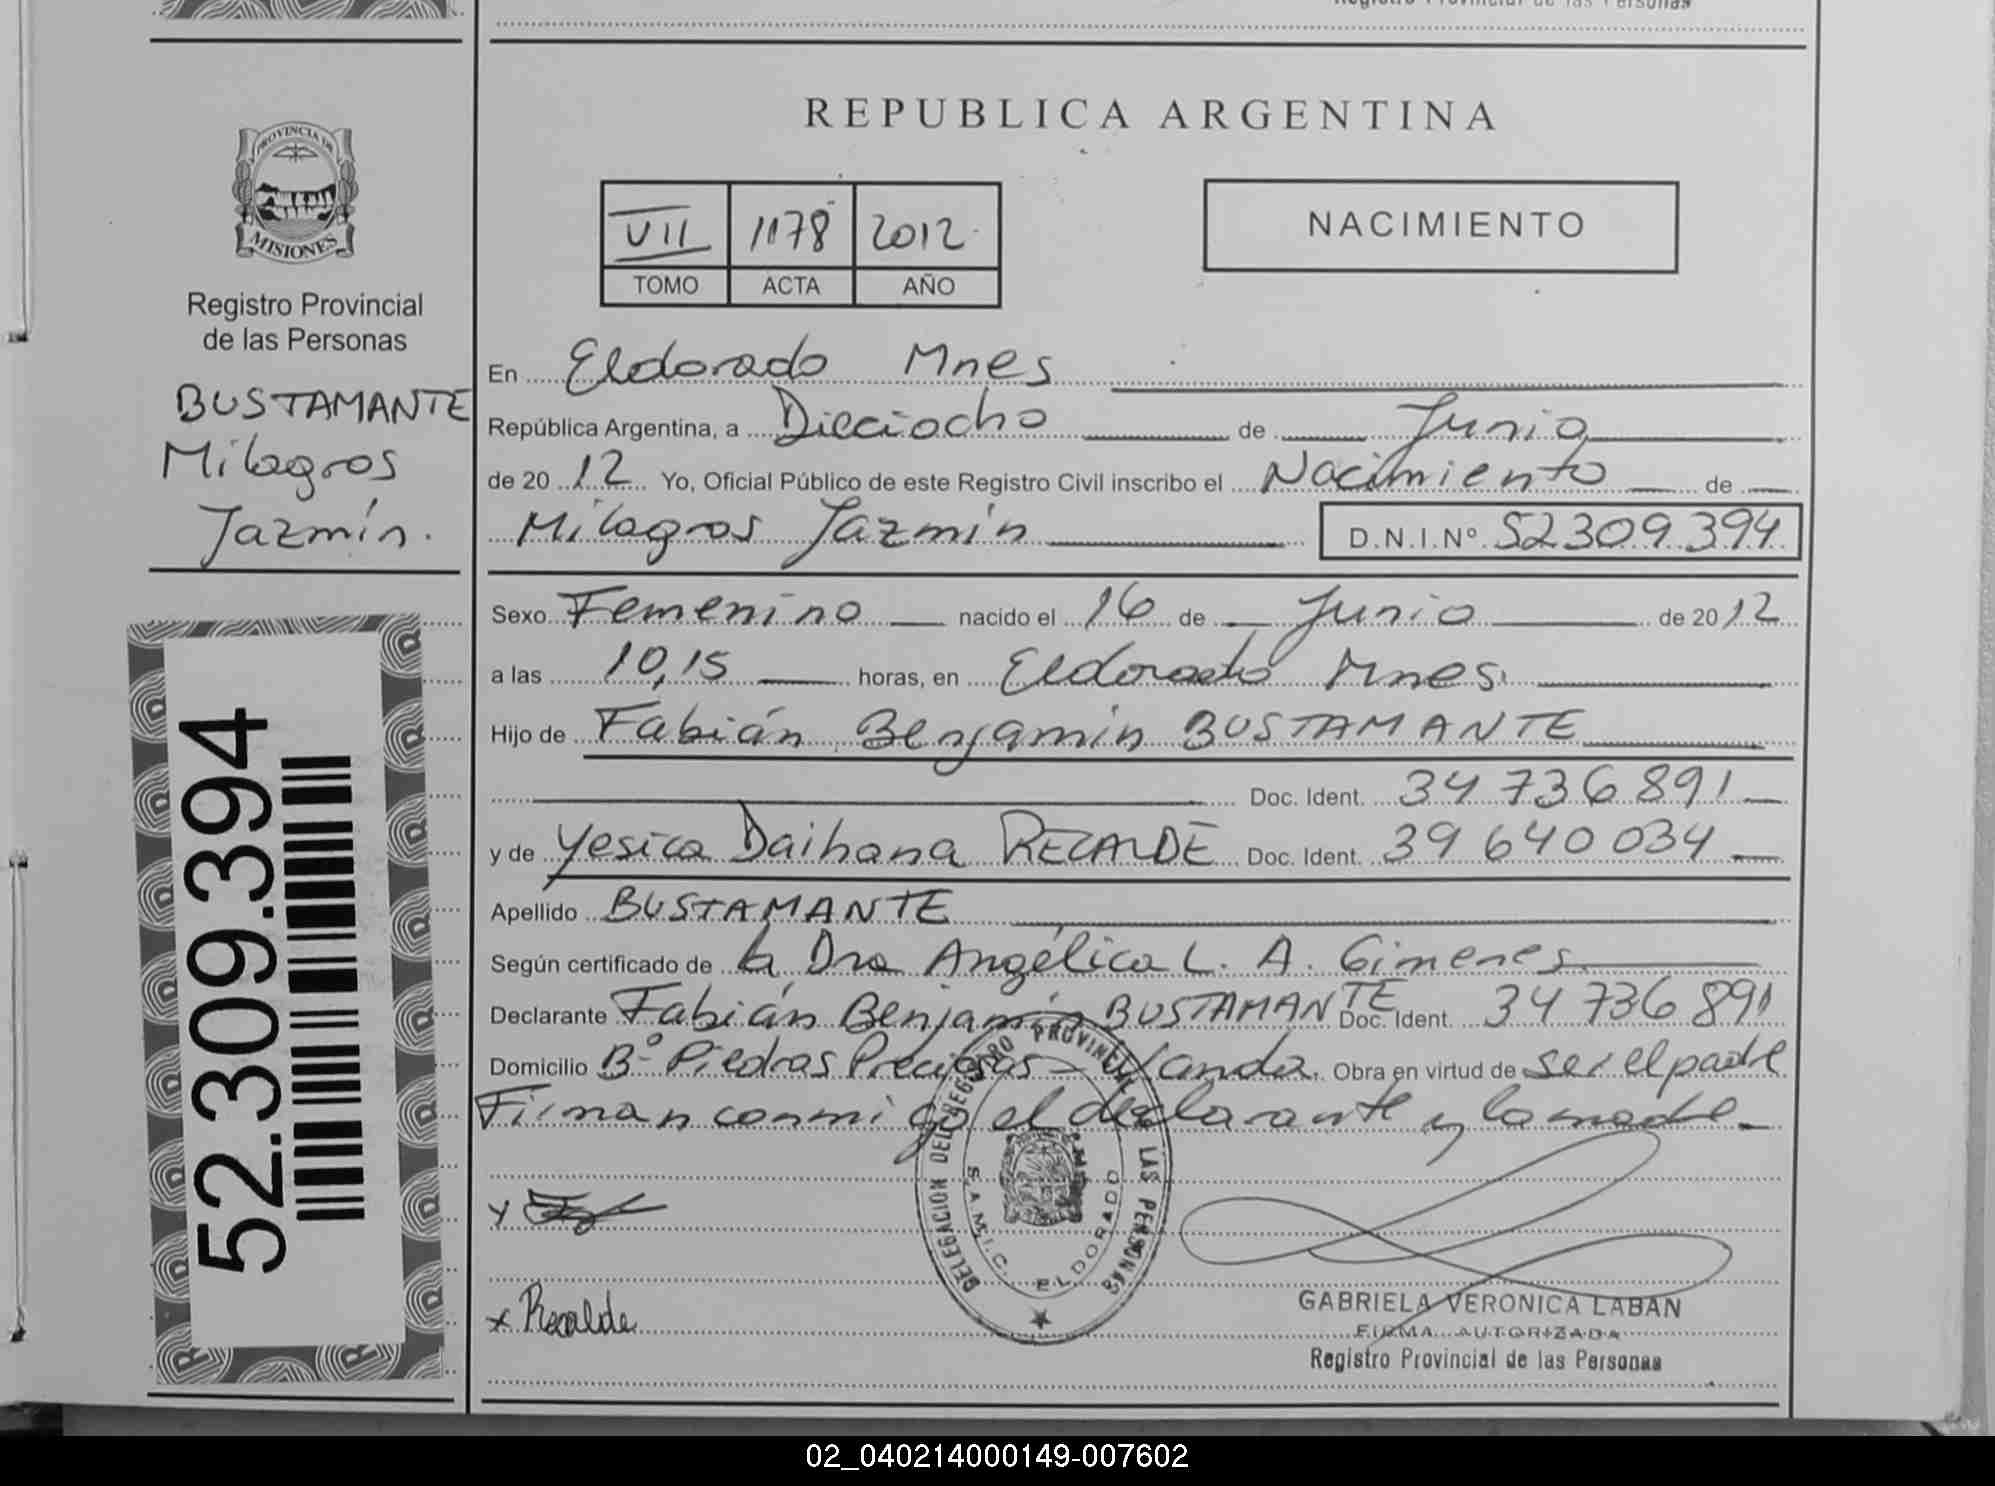 Registro Provincial de las Personas
PROVINCIA DE
MISIONES
Registro Provincial
de las Personas
BUSTAMANTE
Milagros
Jazmín.
52.309.394
REPUBLICA ARGENTINA
VII 1178 2012
TOMO ACTA AÑO
NACIMIENTO
En Eldorado Mnes
República Argentina, a Dieciocho de Junio
de 2012 Yo, Oficial Público de este Registro Civil inscribo el Nacimiento de
Milagros Jazmín D.N.I.Nº 52309.394
Sexo Femenino nacido el 16 de Junio de 2012
a las 10,15 horas, en Eldorado Mnes.
Hijo de Fabián Benjamín BUSTAMANTE
Doc. Ident. 34 736 891
y de Yesica Daihana RECALDE Doc. Ident. 39 640 034
Apellido BUSTAMANTE
Según certificado de la Dra Angélica L. A. Gimenes
Declarante Fabián Benjamín BUSTAMANTE Doc. Ident. 34 736 891
Domicilio Bº Piedras Preciosas - Obra en virtud de ser el padre
Firman conmigo el declarante y la madre
DELEGACION DEL REGISTRO PROVINCIAL DE LAS PERSONAS
S.A.M.I.C. ELDORADO
x Recalde
GABRIELA VERONICA LABAN
FIRMA AUTORIZADA
Registro Provincial de las Personas
02_040214000149-007602